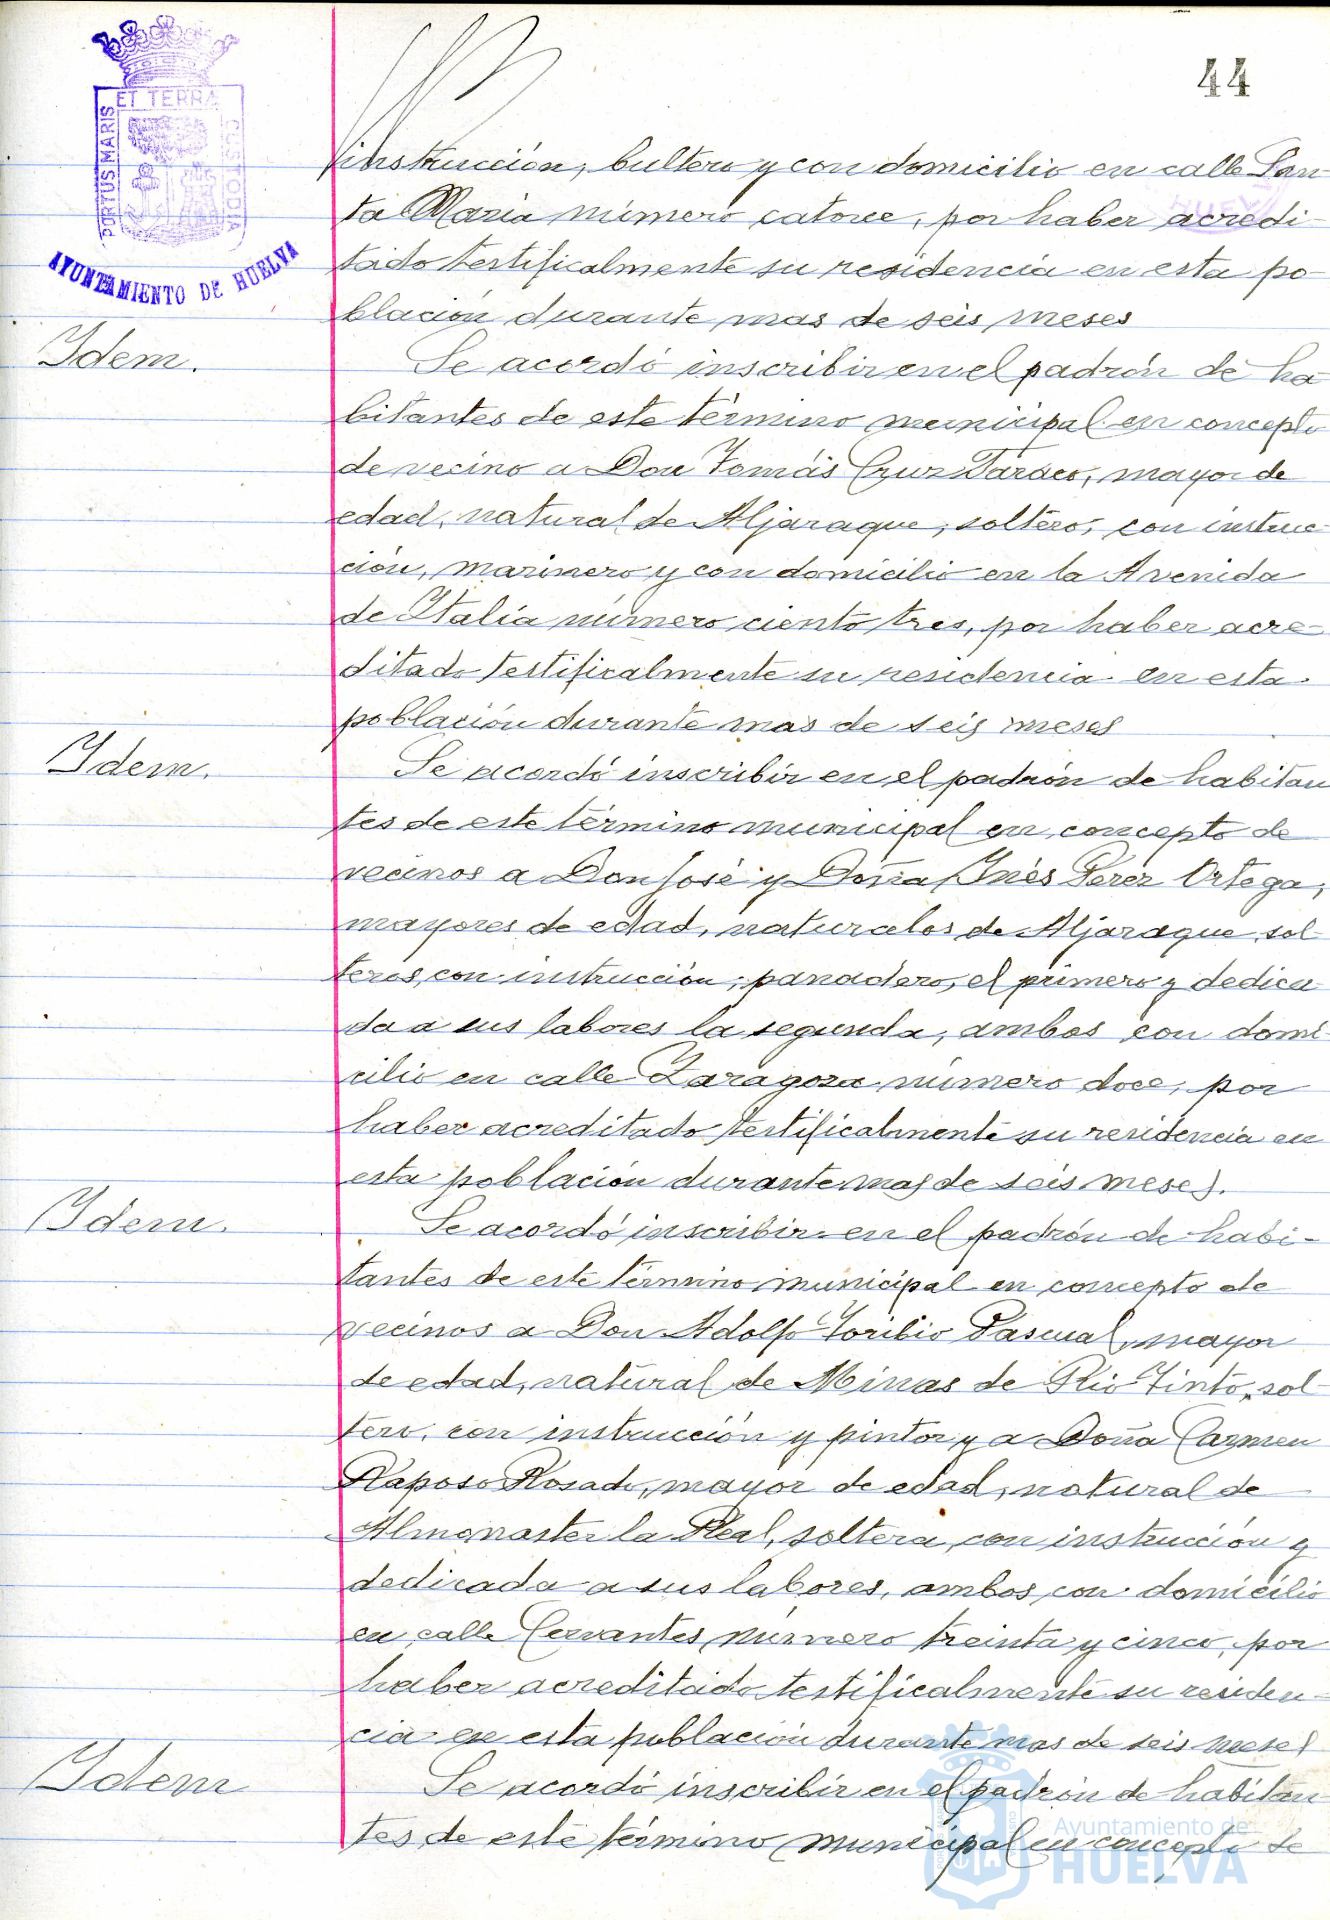 44
ET TERRA
PORTUS MARIS
CUSTODIA
AYUNTAMIENTO DE HUELVA
instrucción, bultero y con domicilio en calle San-
ta Maria número catorce, por haber acredi-
tado testificalmente su residencia en esta po-
blación durante mas de seis meses
Idem.
Se acordó inscribir en el padrón de ha
bitantes de este término municipal en concepto
de vecino a Don Tomás Cruz Taraco, mayor de
edad, natural de Aljaraque, soltero, con instruc-
ción, marinero y con domicilio en la Avenida
de Italia número ciento tres, por haber acre-
ditado testificalmente su residencia en esta
población durante mas de seis meses
Idem.
Se acordó inscribir en el padrón de habitan
tes de este término municipal en concepto de
vecinos a Don José y Doña Inés Perez Ortega,
mayores de edad, naturales de Aljaraque, sol-
teros, con instrucción, panadero, el primero y dedica-
da a sus labores la segunda, ambos con domi-
cilio en calle Zaragoza número doce, por
haber acreditado testificalmente su residencia en
esta población durante mas de seis meses.
Idem.
Se acordó inscribir en el padrón de habi-
tantes de este término municipal en concepto de
vecinos a Don Adolfo Toribio Pascual, mayor
de edad, natural de Minas de Rio Tinto, sol-
tero, con instrucción y pintor y a Doña Carmen
Raposo Rosado, mayor de edad, natural de
Almonaster la Real, soltera, con instrucción y
dedicada a sus labores, ambos con domicilio
en calle Cervantes número treinta y cinco, por
haber acreditado testificalmente su residen-
cia en esta población durante mas de seis meses
Idem
Se acordó inscribir en el padrón de habitan-
tes de este término municipal en concepto de
Ayuntamiento de
HUELVA